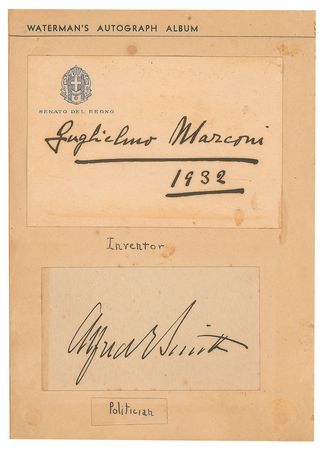 WATERMAN'S AUTOGRAPH ALBUM
SENATO DEL REGNO
Guglielmo Marconi
1932
Inventor
Alfred E Smith
Politician